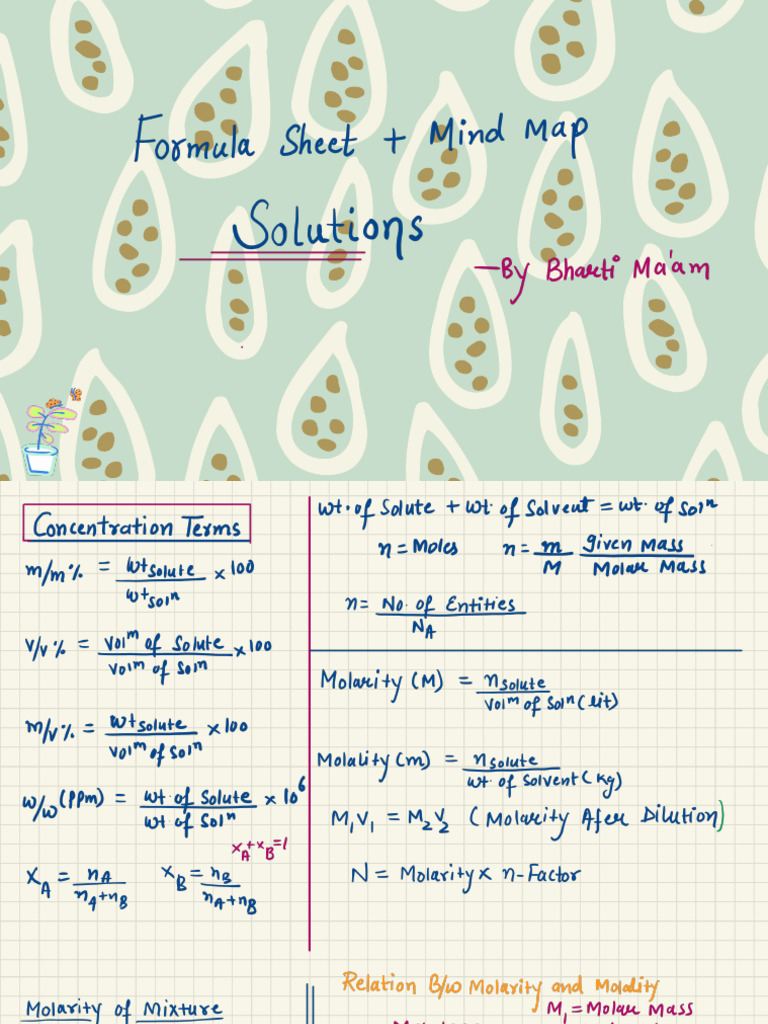 Formula Sheet + Mind Map
Solutions
- By Bharti Ma'am
Concentration Terms
m/m% = wt solute / wt soln × 100
v/v% = volm of Solute / volm of Soln × 100
m/v% = wt solute / volm of Soln × 100
w/w (PPm) = wt. of Solute / wt of Soln × 10^6
xA + xB = 1
XA = nA / nA+nB xB = nB / nA+nB
wt. of Solute + wt. of Solvent = wt. of Soln
n = Moles n = m / M Given Mass / Molar Mass
n = No. of Entities / NA
Molarity (M) = n solute / volm of Soln (lit)
Molality (m) = n solute / wt. of Solvent (kg)
M1V1 = M2V2 (Molarity Afer Dilution)
N = Molarity × n-Factor
Molarity of Mixture
Relation B/w Molarity and Molality
M1 = Molar Mass